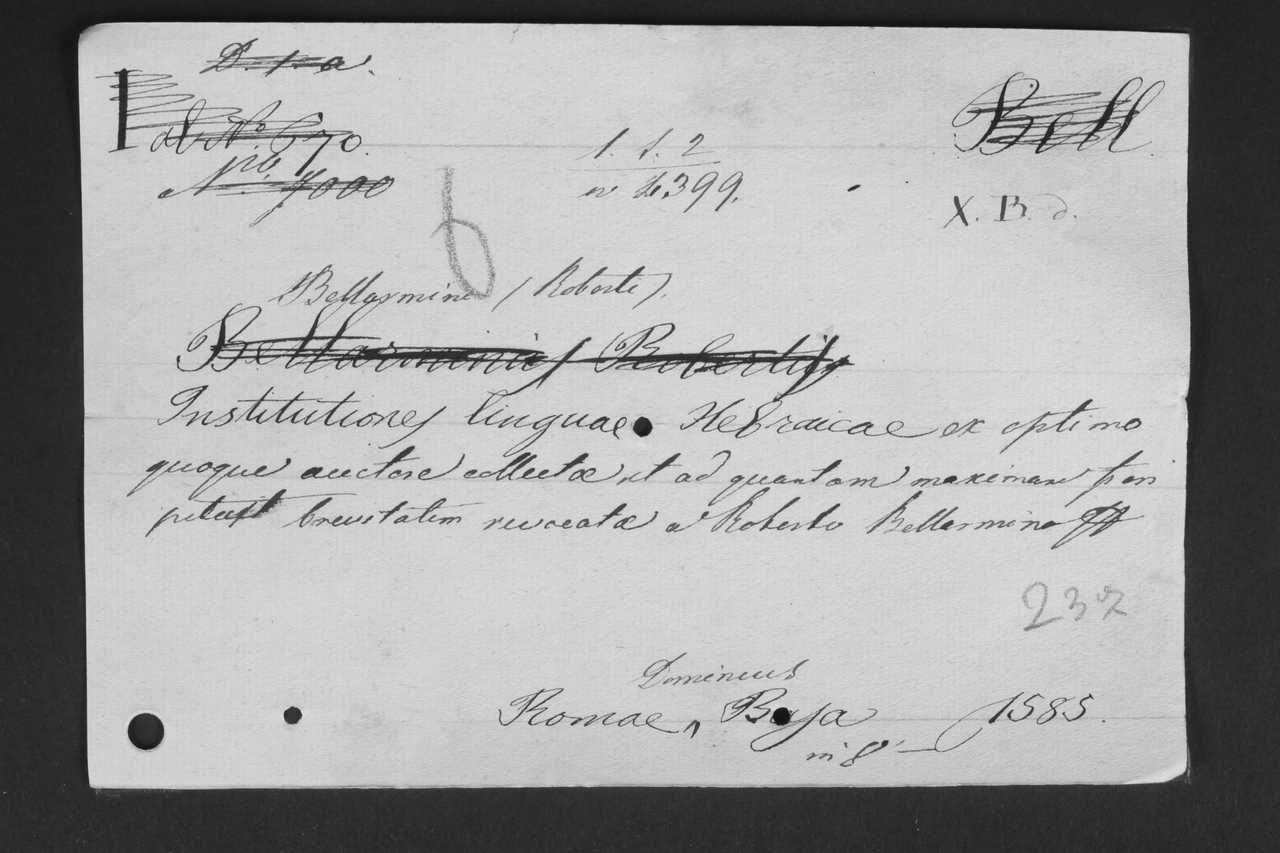 D. 1. a.
ab No. 670.
No. 7000
1. f. 2
n 2399.
Bell
X. B. d.
6
Bellarmino (Roberto).
Bellarminis Robertus
Institutiones linguae Hebraicae ex optimo
quoque auctore collectae, et ad quantam maximam fieri
potest brevitatem revocatae a Roberto Bellarmino
237
Dominicus
Romae, Basa 1585.
in 8°